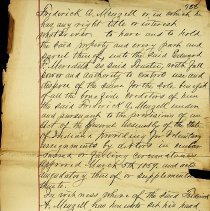 Frederick A. Mugell or in which he
has any right title or interest
whatsoever. to have and to hold
the said property and every part and
parcel thereof, unto the said Edward
C. Meredith as said Trustee, with full
power and authority to control use and
dispose of the same for the sole benefit
of all the bona fide creditors of him
the said Frederick A. Mugell under
and pursuant to the provisions of an
Act of the General Assembly of the State
of Indiana providing for voluntary
assignments by debtors in
or failing circumstances
approved March 5th 1859 and
thereof or supplemental
thereto.
In witness whereof the said Frederick
A. Mugell has hereunto set his hand